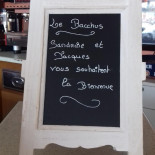 Le Bacchus
Sandrine et
Jacques
vous souhaitent
la Bienvenue